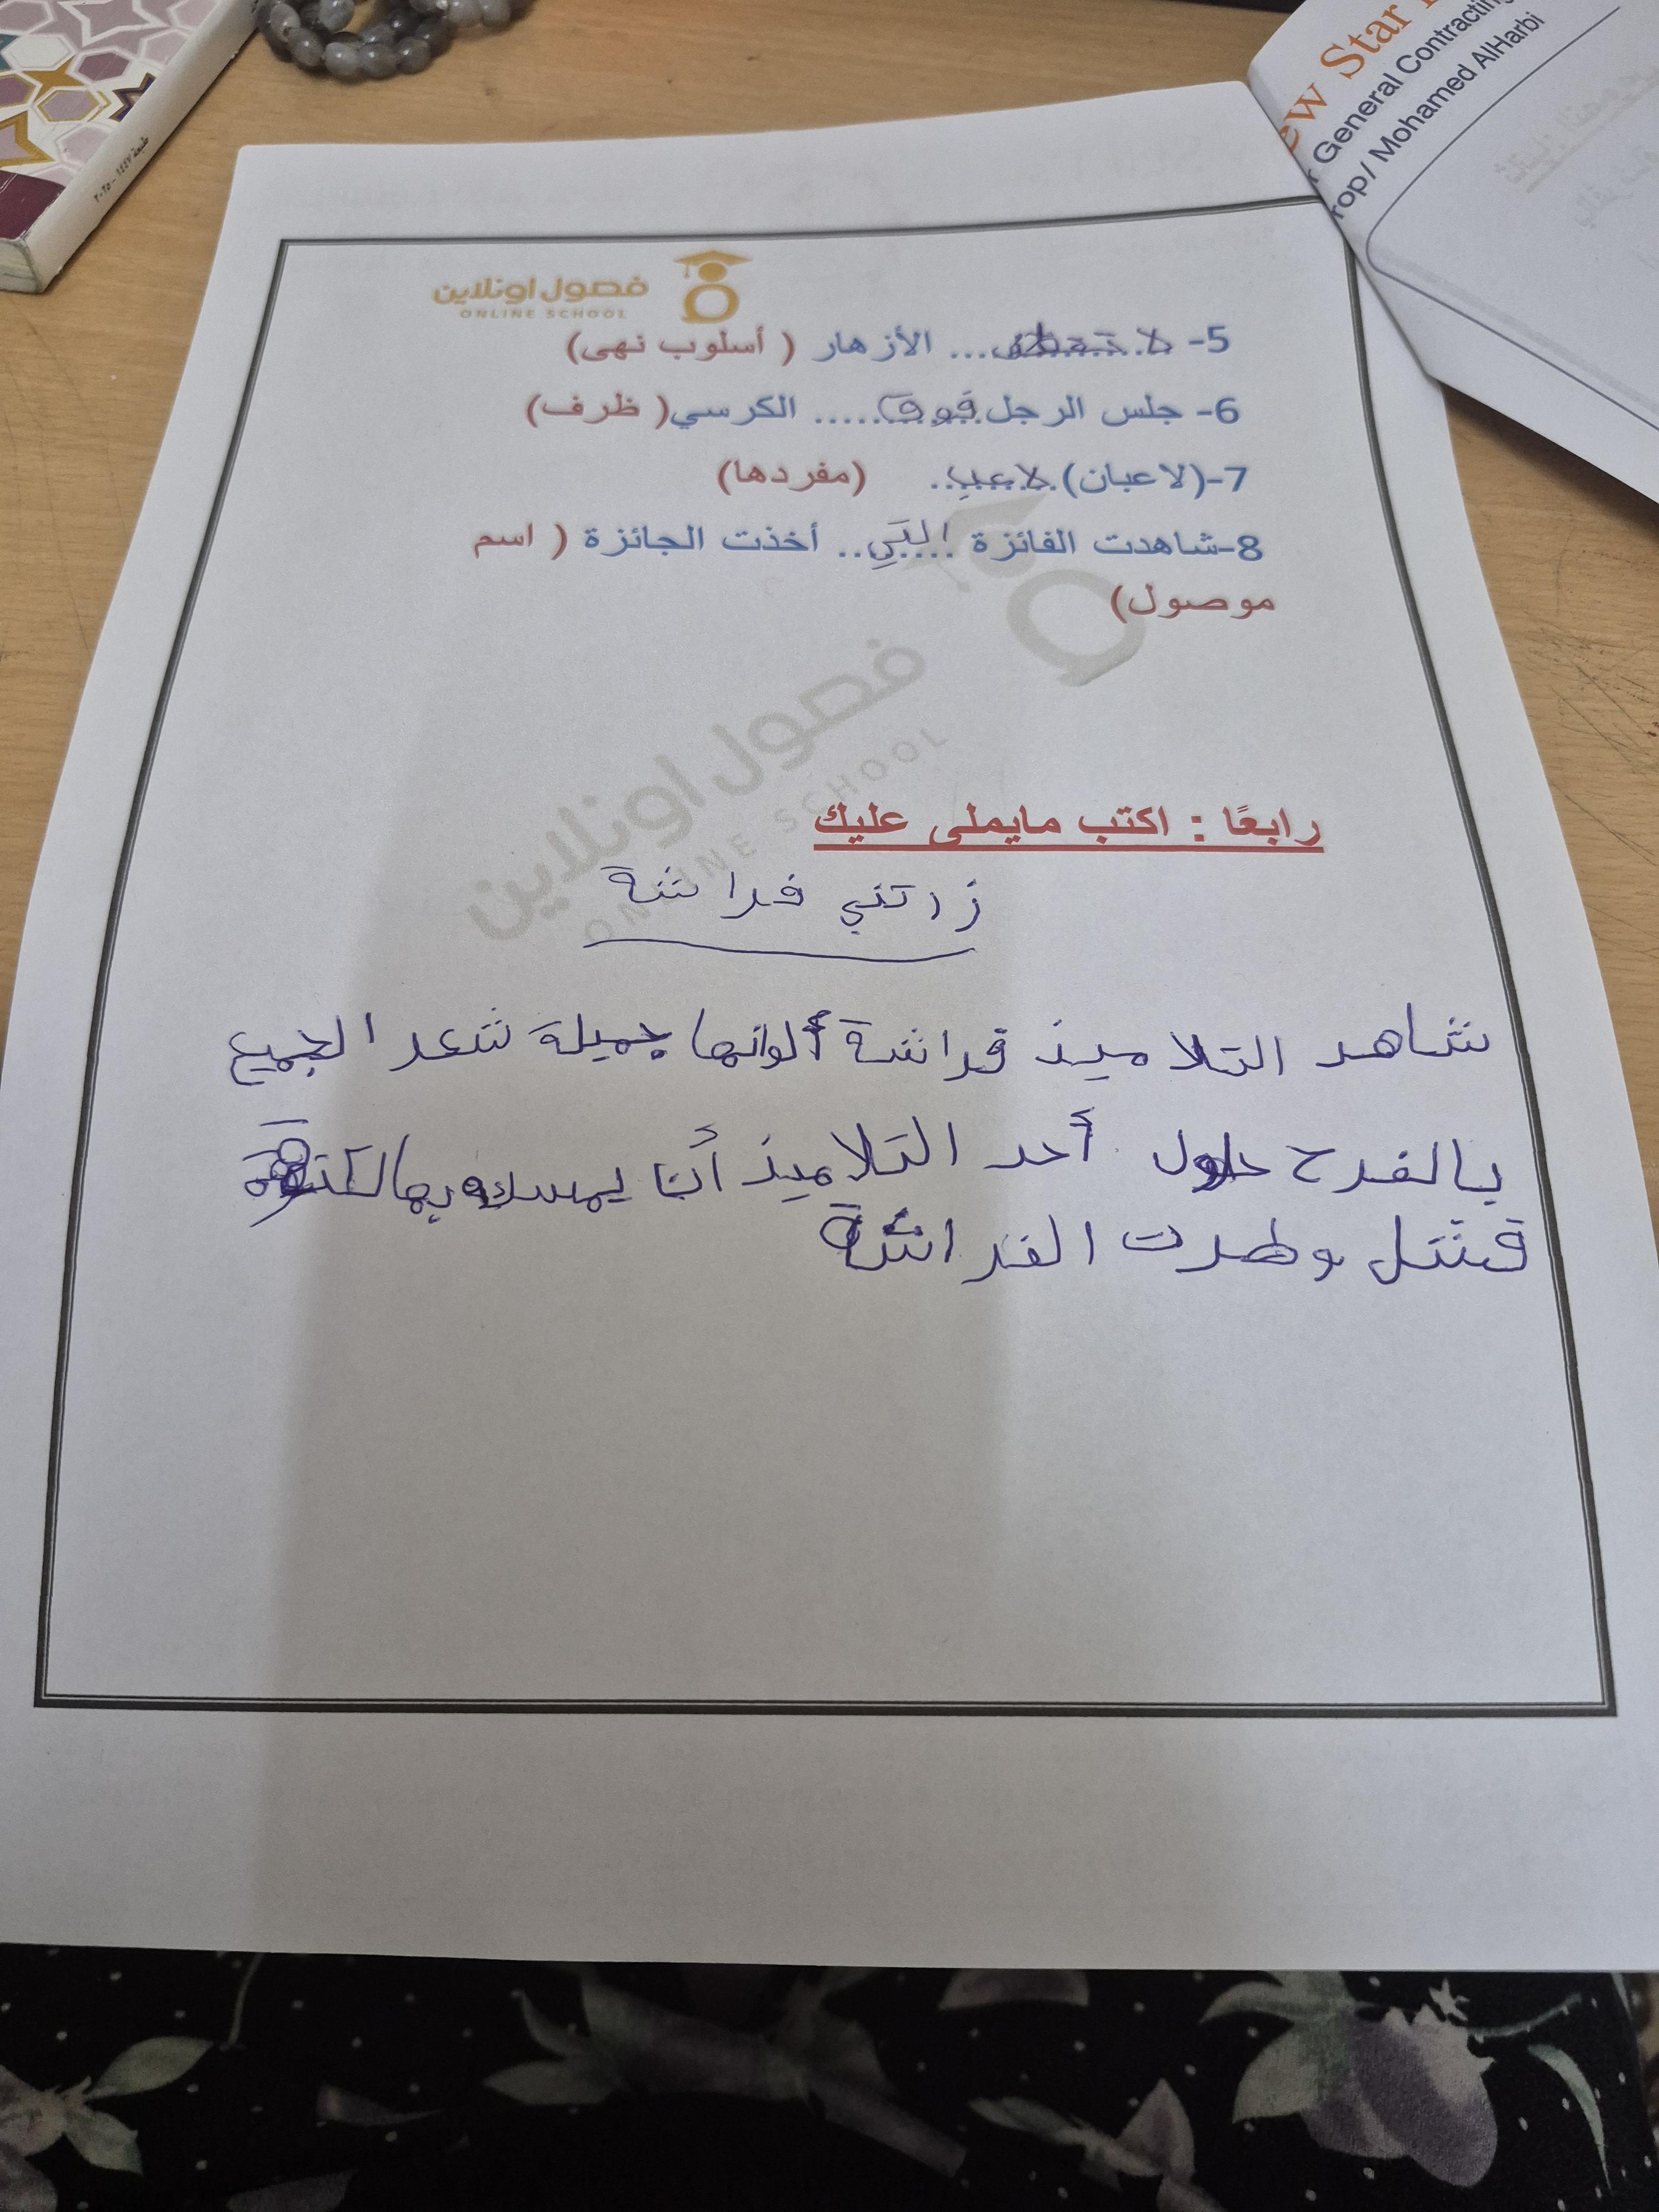 طبعة ١٤٤٧ - ٢٠٢٥
ew Star
General Contracting
rop / Mohamed AlHarbi
فصول اونلاين
ONLINE SCHOOL
5- لا ... الأزهار ( أسلوب نهى)
6- جلس الرجل فوق ..... الكرسي( ظرف)
7-(لاعبان) لاعب .. (مفردها)
8-شاهدت الفائزة التي .. أخذت الجائزة ( اسم
موصول)
فصول اونلاين
ONLINE SCHOOL
رابعًا : اكتب مايملى عليك
زارتني فراشة
شاهد التلاميذ فراشة ألوانها جميلة شعر الجميع
بالفرح حاول أحد التلاميذ أن يمسك بها
فشل وطرت الفراشة